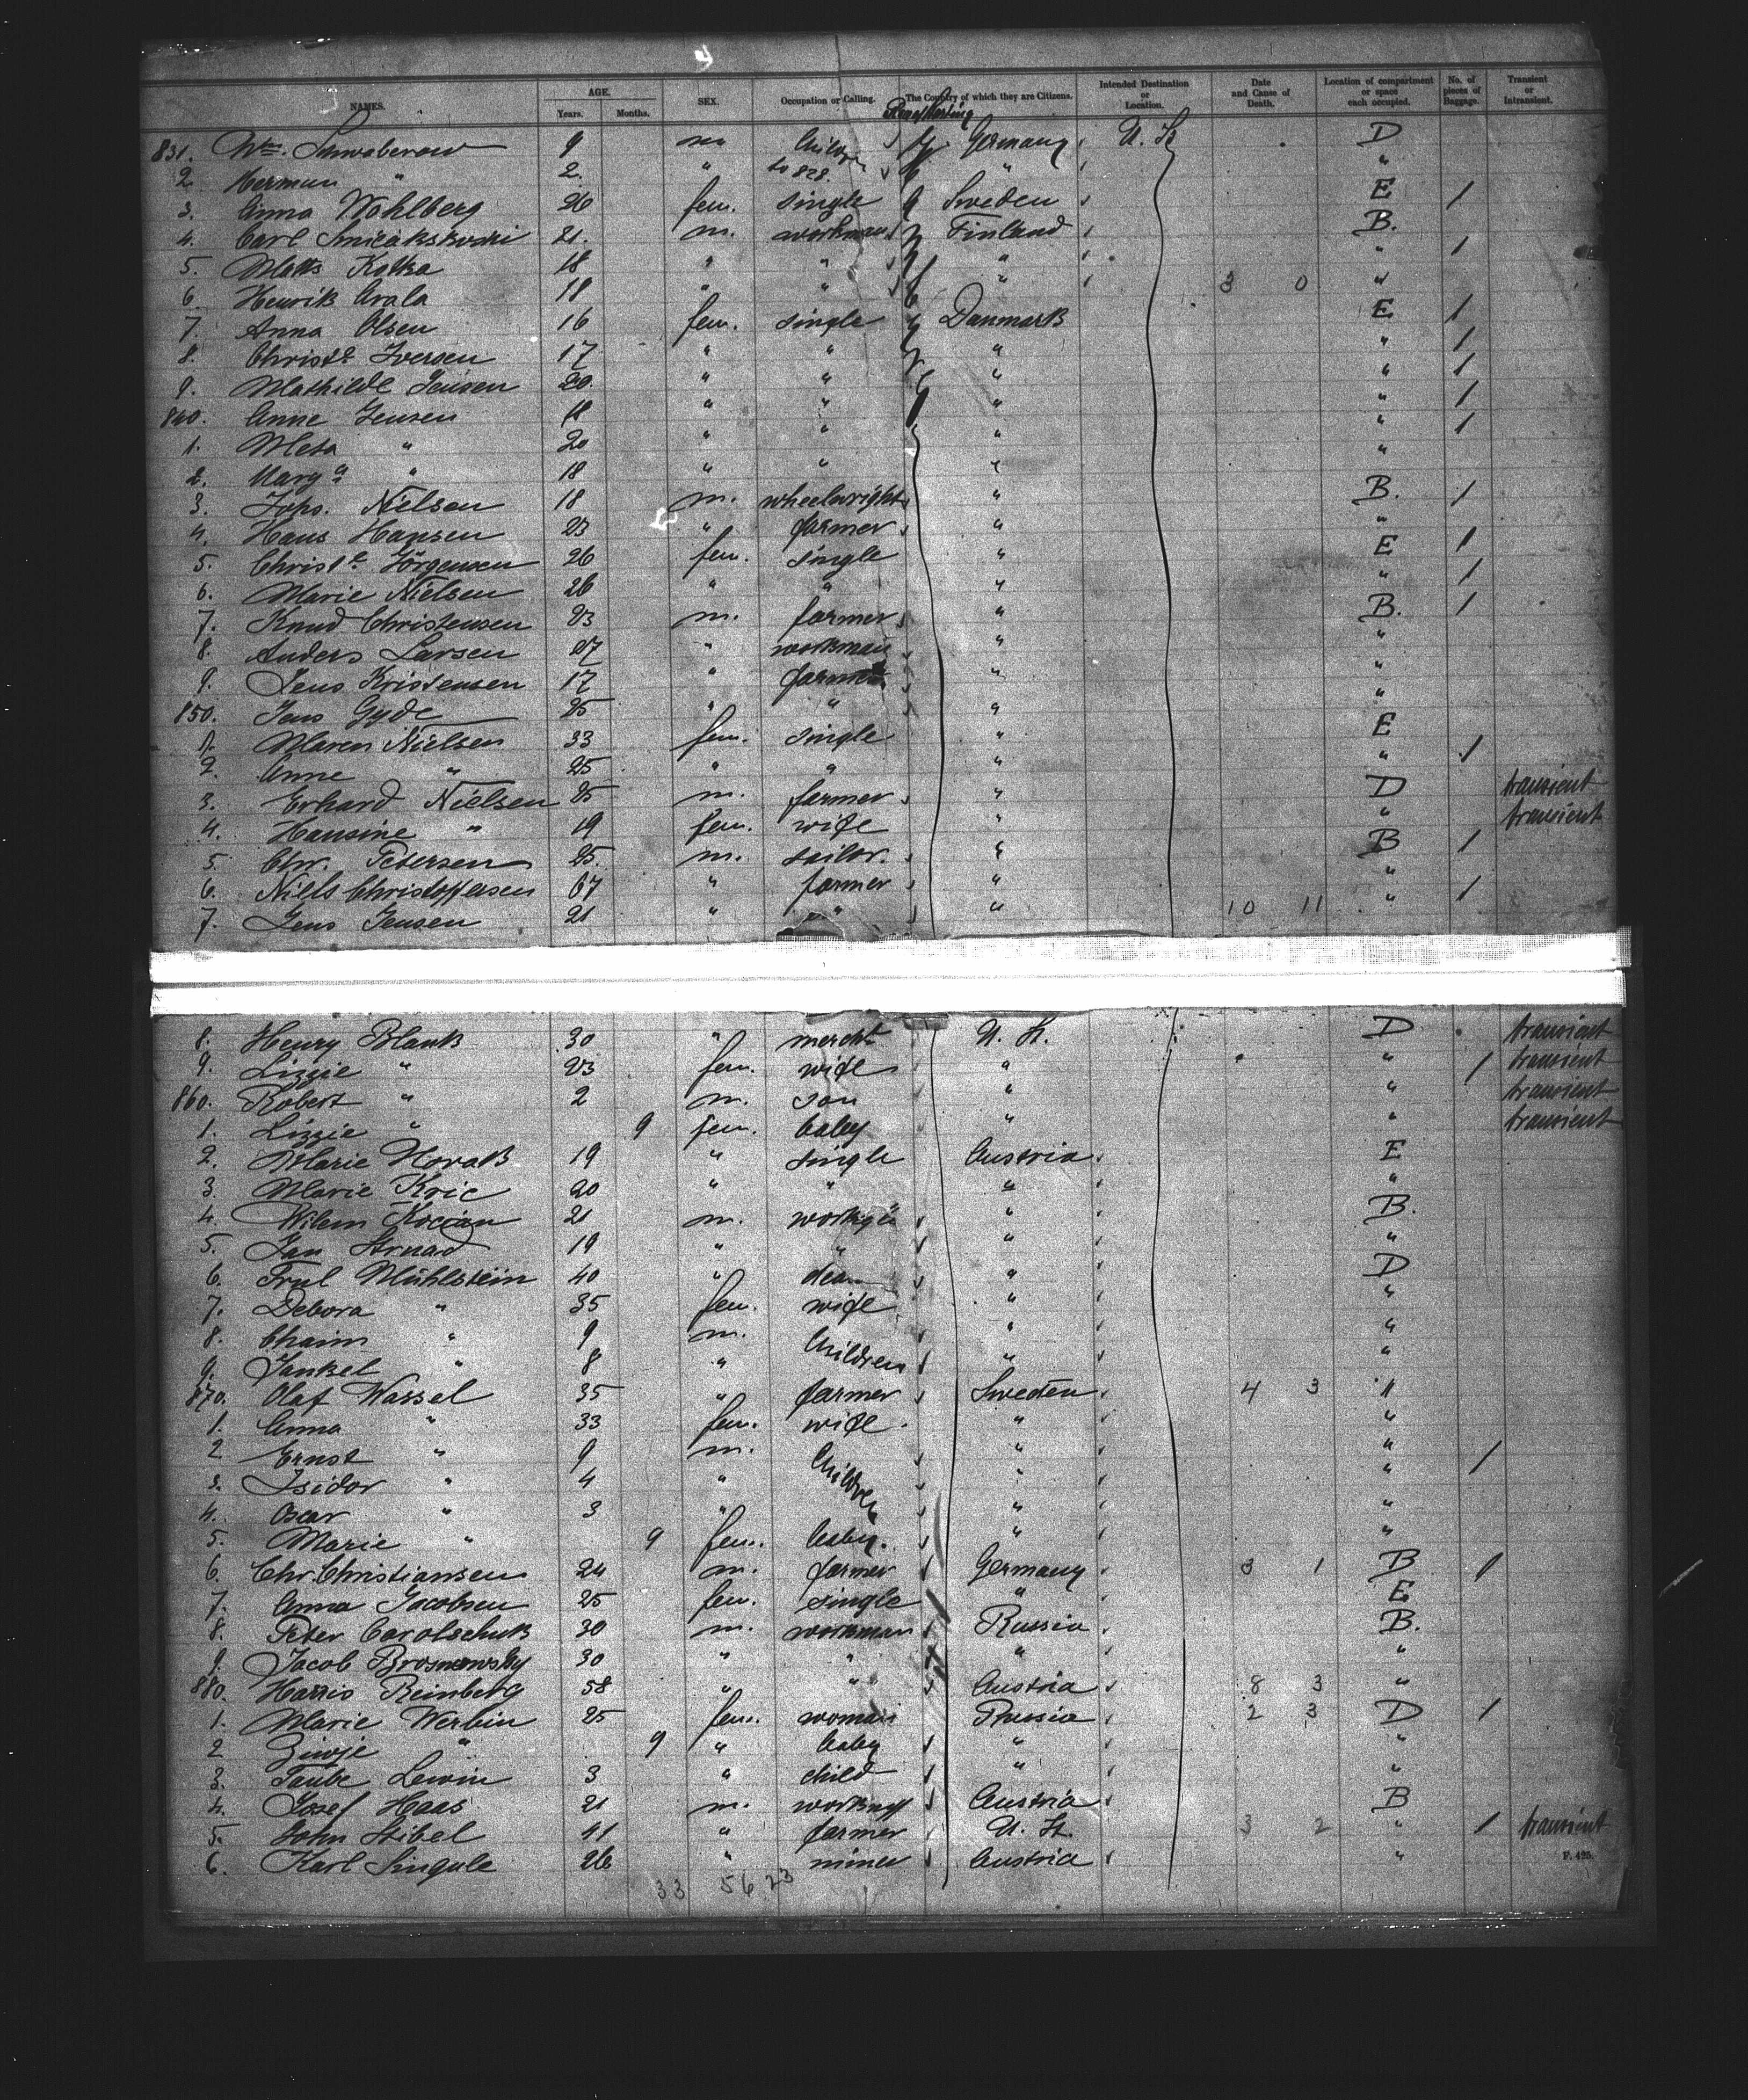 NAMES. AGE. Years. Months. SEX. Occupation or Calling. The Country of which they are Citizens. Intended Destination or Location. Date and Cause of Death. Location of compartment or space each occupied. No. of pieces of Baggage. Transient or Intransient.
831. Wm. Schwaberow 9 m Children Germany U. St. D
2. Herman " 2. " to 828. " "
3. Anna Wohlberg 26 fem. single Sweden E 1
4. Carl 21. m. workman Finland B.
5. Matts Kotka 18 " " " " 1
6. Henrik Arala 18 " " " 3 0 "
7. Anna Olsen 16 fem. single Danmark E 1
8. Christe Iversen 17 " " " " 1
9. Mathilde Jensen 20. " " " " 1
840. Anne Jensen 18 " " " " 1
1. Meta " 20 " " " " 1
2. Marga " 18 " " " "
3. Johs. Nielsen 18 m. wheelwright " B. 1
4. Hans Hansen 23 " farmer " "
5. Christe Jörgensen 26 fem. single " E 1
6. Marie Nielsen 26 " " " " 1
7. Knud Christensen 23 m. farmer " B. 1
8. Anders Larsen 27 " workman " "
9. Jens Kristensen 17 " farmer " "
850. Jens Gyde 25 " " " "
1. Maren Nielsen 33 fem. single " E
2. Anne " 25 " " " " 1
3. Erhard Nielsen 25 m. farmer " D transient
4. Hansine " 19 fem. wife " " transient
5. Chr. Petersen 25. m. sailor. " B 1
6. Niels Christoffersen 67 " farmer " " 1
7. Jens Jensen 21 " " " 10 11 "
8. Henry Blank 30 " mercht U. St. D transient
9. Lizzie " 23 fem. wife " " 1 transient
860. Robert " 2 m. son " " transient
1. Lizzie " 9 fem. baby " " transient
2. Marie Novak 19 " single Austria E
3. Marie Kric 20 " " " "
4. Wilem Kocian 21 m. " B.
5. Jan Strnad 19 " " " "
6. Frul Mühlstein 40 " " D
7. Debora " 35 fem. wife " "
8. Chaim " 9 m. Children " "
9. Jankel " 8 " " "
870. Olaf Wassel 35 " farmer Sweden 4 3 "
1. Anna " 33 fem. wife " "
2 Ernst " 9 m. Children " " 1
3. Isidor " 4 " " "
4. Oscar " 3 " " "
5. Marie " 9 fem. baby. " "
6. Chr. Christiansen 24 m. farmer Germany 3 1 B 1
7. Anna Jacobsen 25 fem. single " E
8. Peter Carolschuk 30 m. workman Russia B.
9. Jacob Brosnowsky 30 " " " "
880. Harris Reinberg 58 " " Austria 8 3 "
1. Marie Werbin 25 fem. woman Russia 2 3 D 1
2 Ziwje " 9 " baby " "
3. Taube Lewin 3 " child " "
4. Josef Haas 21 m. Austria B
5. John Stibel 41 " farmer U. St. 3 2 " 1 transient
6. Karl Singule 26 " miner Austria "
F. 425.
33 56 23